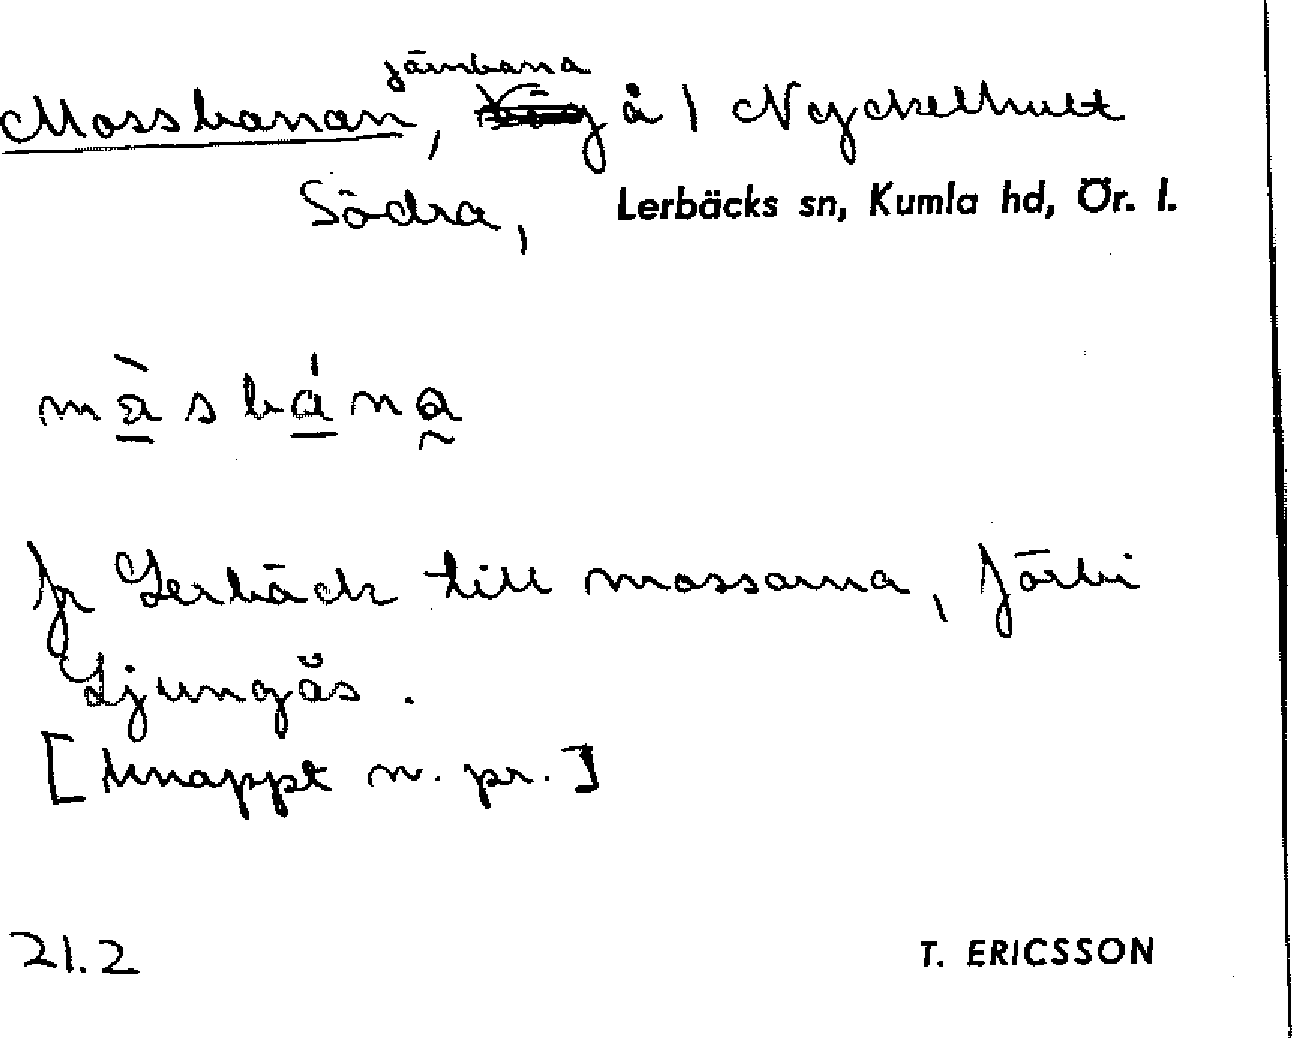 järnbana
Mossbanan, å 1 Nyckelhult
Södra, Lerbäcks sn, Kumla hd, Ör. l.
mà̱sbá̱na̰
fr Lerbäck till mossarna, förbi
Ljungås.
[knappt n. pr.]
21.2 T. ERICSSON